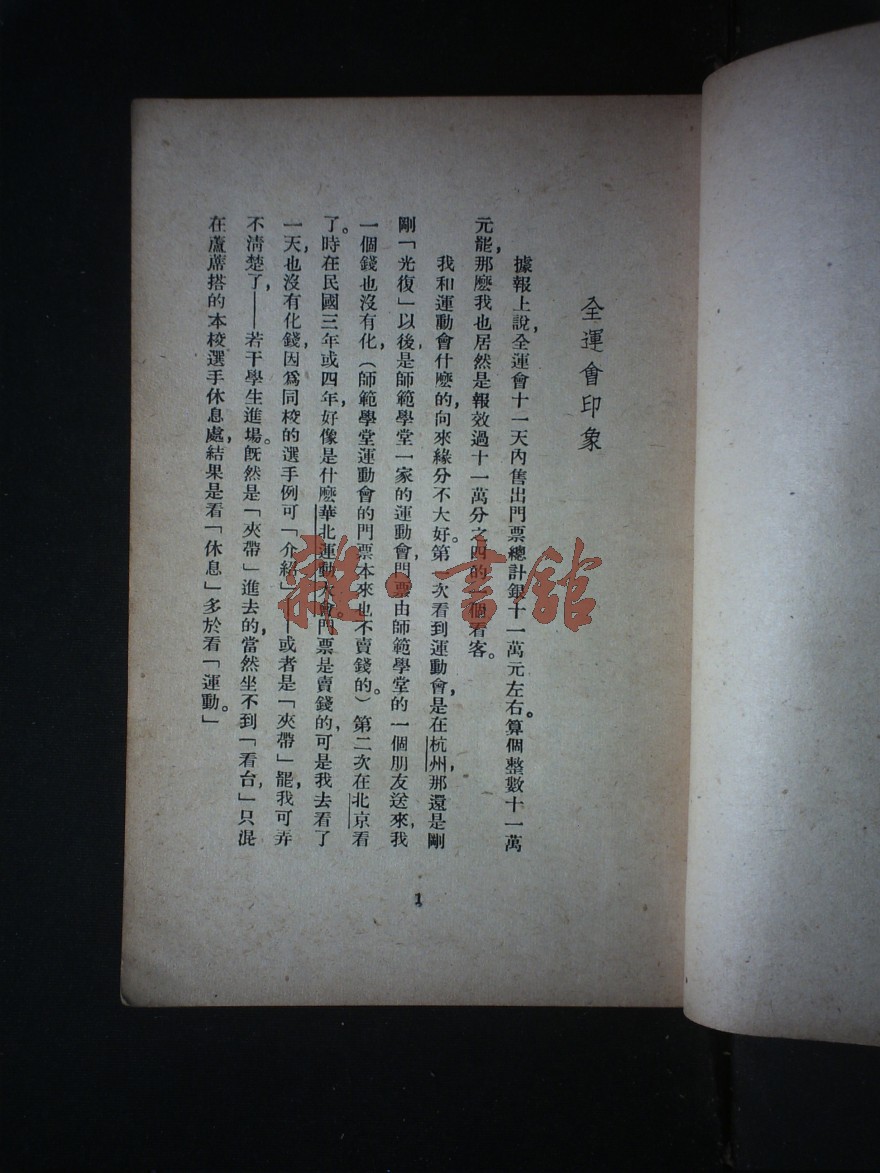 全運會印象
據報上說,全運會十一天內售出門票總計銀十一萬元左右。算個整數十一萬
元罷,那麼我也居然是報效過十一萬分之四的一個看客。
我和運動會什麼的,向來緣分不大好。第一次看到運動會,是在杭州,那還是剛
剛「光復」以後,是師範學堂一家的運動會,門票由師範學堂的一個朋友送來,我
一個錢也沒有化,(師範學堂運動會的門票本來也不賣錢的。)第二次在北京看
了。時在民國三年或四年,好像是什麼華北運動大會。門票是賣錢的,可是我去看了
一天,也沒有化錢,因爲同校的選手例可「介紹」——或者是「夾帶」罷,我可弄
不清楚了,——若干學生進場。旣然是「夾帶」進去的,當然坐不到「看台,」只混
在蘆蓆搭的本校選手休息處,結果是看「休息」多於看「運動。」
1
雜·書館